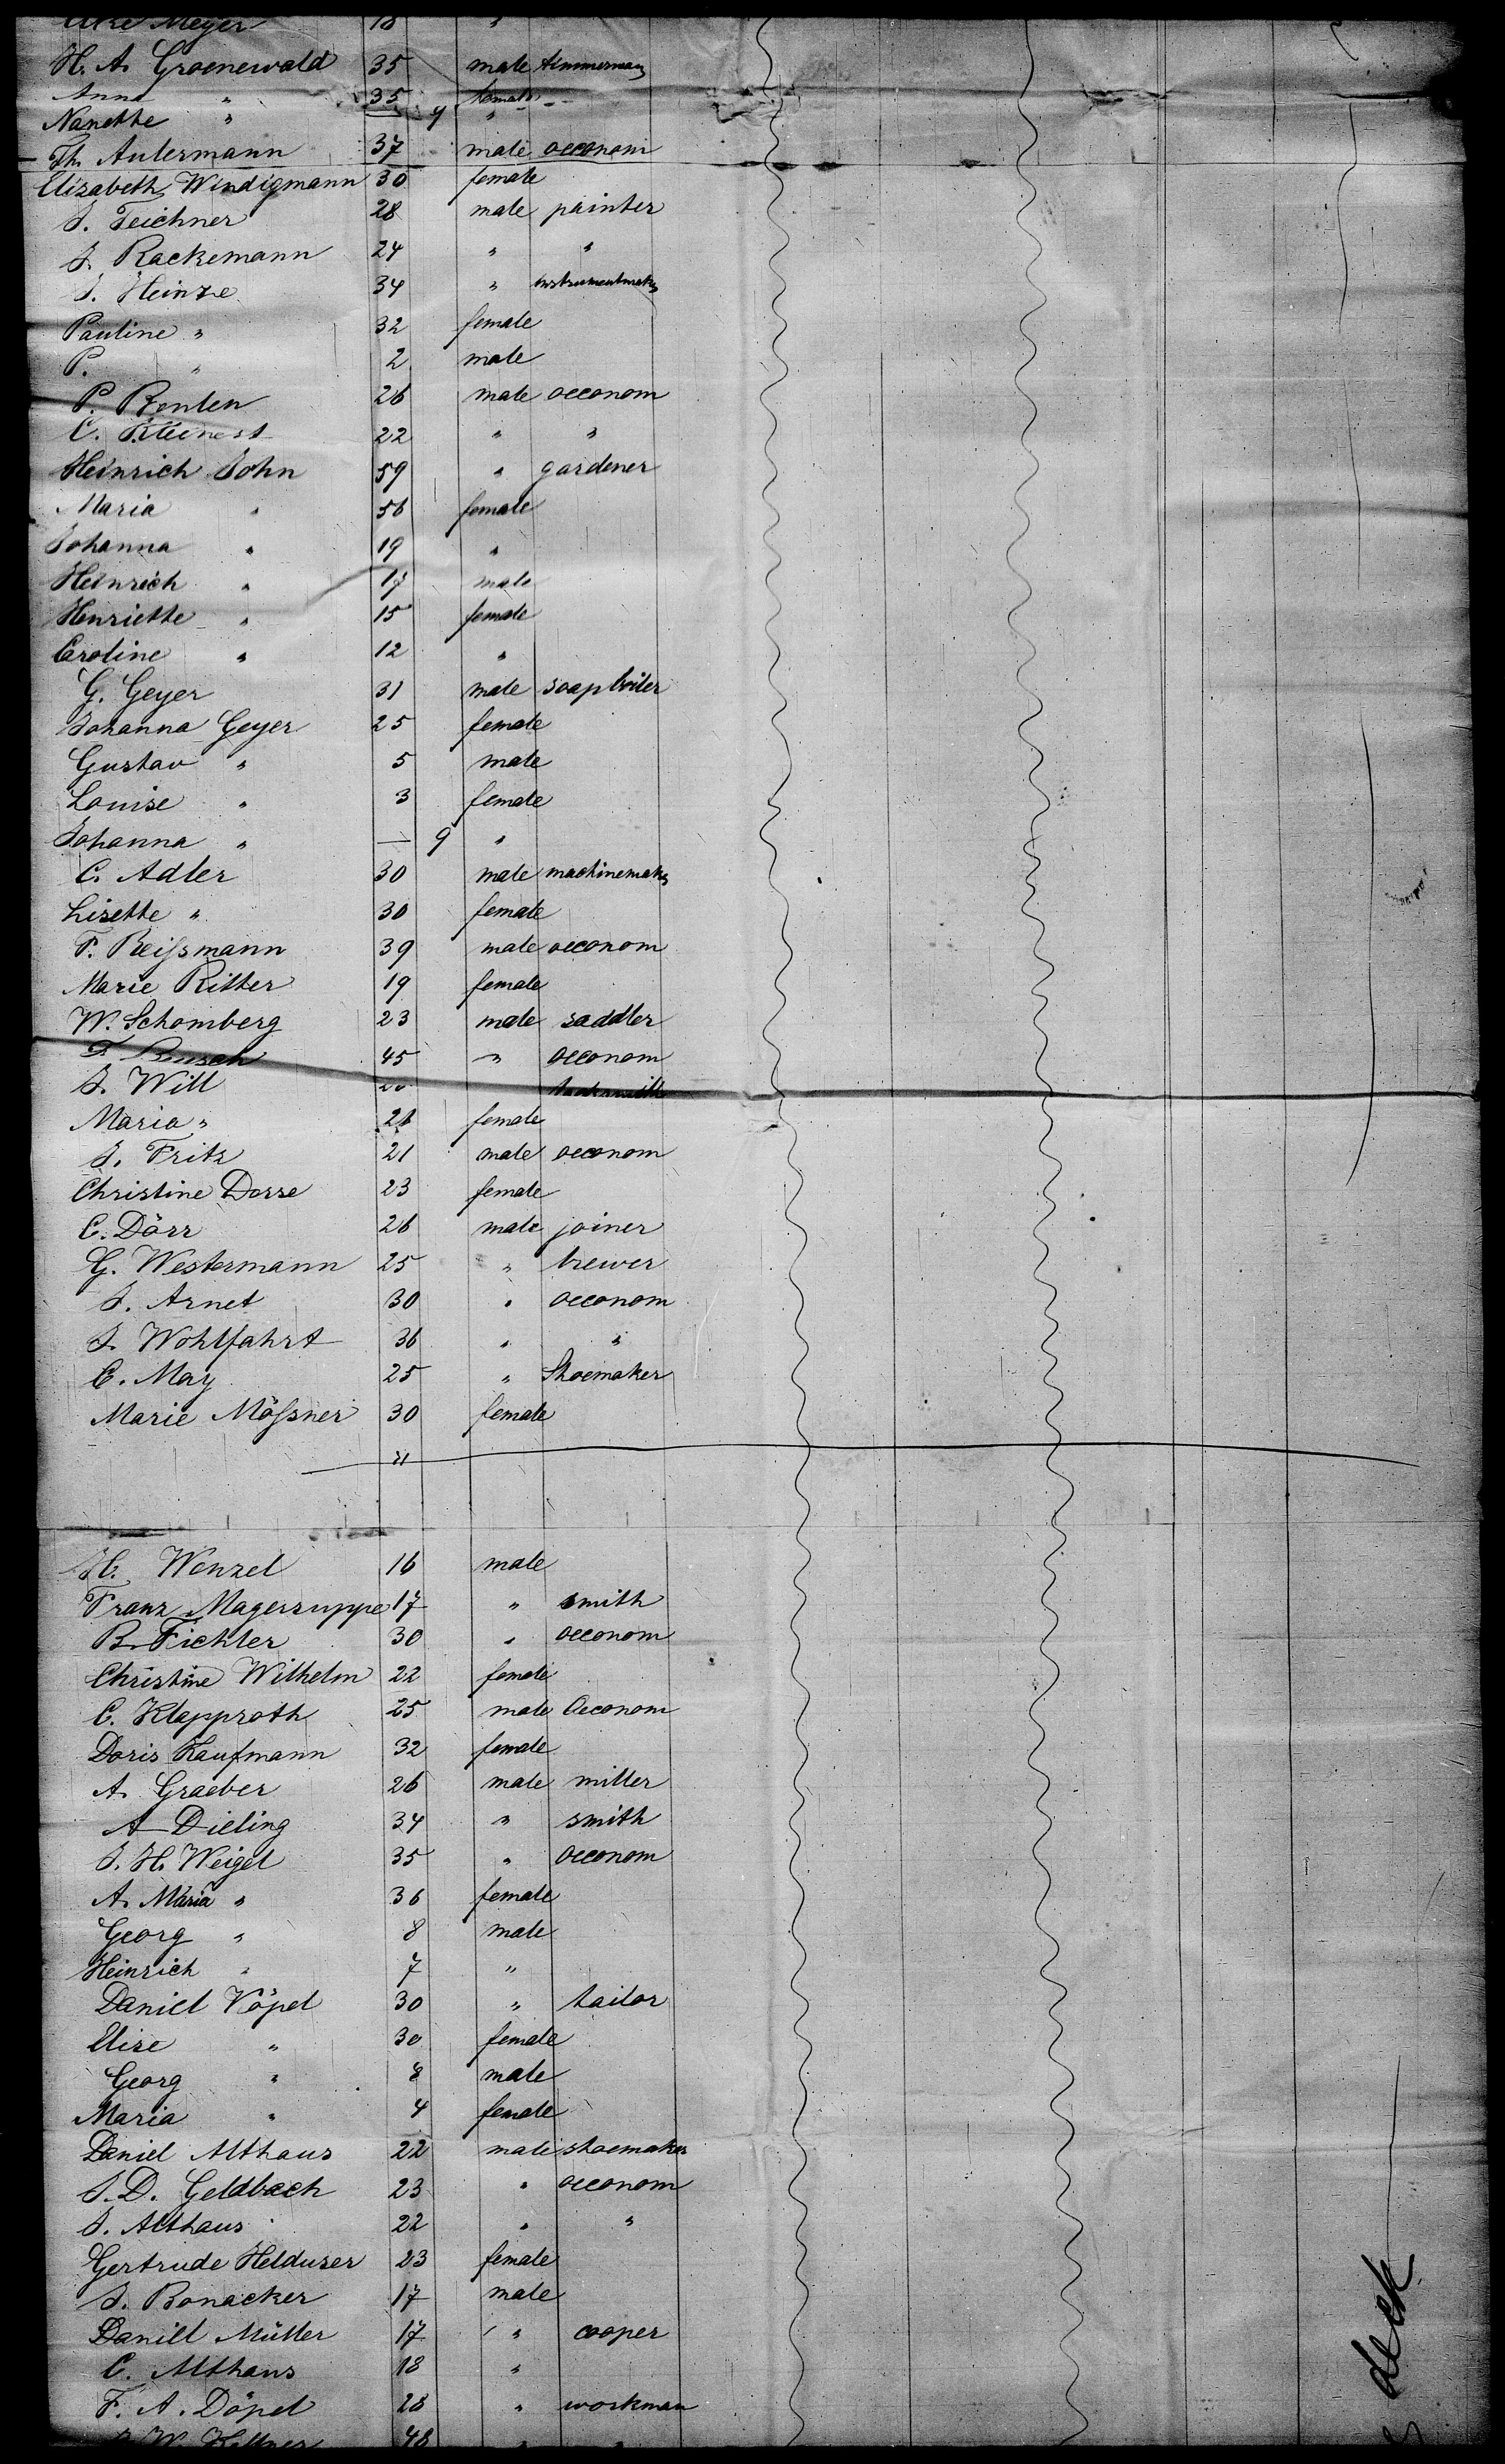 Meyer 18 "
H. A. Groenewald 35 male timmerman
Anna " 35 female
Nanette " — 7 "
Th. Aulermann 37 male oeconom
Elizabeth Windigmann 30 female
J. Teichner 28 male painter
J. Rackemann 24 " "
J. Heinze 34 " instrumentmak
Pauline " 32 female
P. " 2 male
P. Benten 26 male oeconom
C. 22 " "
Heinrich John 59 " gardener
Maria " 56 female
Johanna " 19 "
Heinrich " 17 male
Henriette " 15 female
Caroline " 12 "
G. Geyer 31 male soapboiler
Johanna Geyer 25 female
Gustav " 5 male
Louise " 3 female
Johanna " — 9 "
C. Adler 30 male machinemak
Lisette " 30 female
F. Reißmann 39 male oeconom
Marie Ritter 19 female
W. Schomberg 23 male saddler
F. Busch 45 " oeconom
J. Will
Maria " 26 female
J. Fritz 21 male oeconom
Christine Dorse 23 female
C. Dörr 26 male joiner
G. Westermann 25 " brewer
J. Arnet 30 " oeconom
J. Wohlfahrt 36 " "
C. May 25 " Shoemaker
Marie Mößner 30 female
H. Wenzel 16 male
Franz Magersuppe 17 " smith
B. Fichter 30 " oeconom
Christine Wilhelm 22 female
C. Klapproth 25 male Oeconom
Doris Kaufmann 32 female
A. Graeber 26 male miller
A Dieling 34 " smith
J. H. Weigel 35 " oeconom
A. Maria " 36 female
Georg " 8 male
Heinrich " 7 "
Daniel Vöpel 30 " tailor
Elise " 30 female
Georg " 8 male
Maria " 4 female
Daniel Althaus 22 male shoemaker
J. D. Geldbach 23 " oeconom
J. Althaus 22 " "
Gertrude Helduser 23 female
J. Bonacker 17 male
Daniel Müller 17 " cooper
C. Althaus 18 "
F. A. Döpel 28 " workman
W. Kellner 48 " "
deck